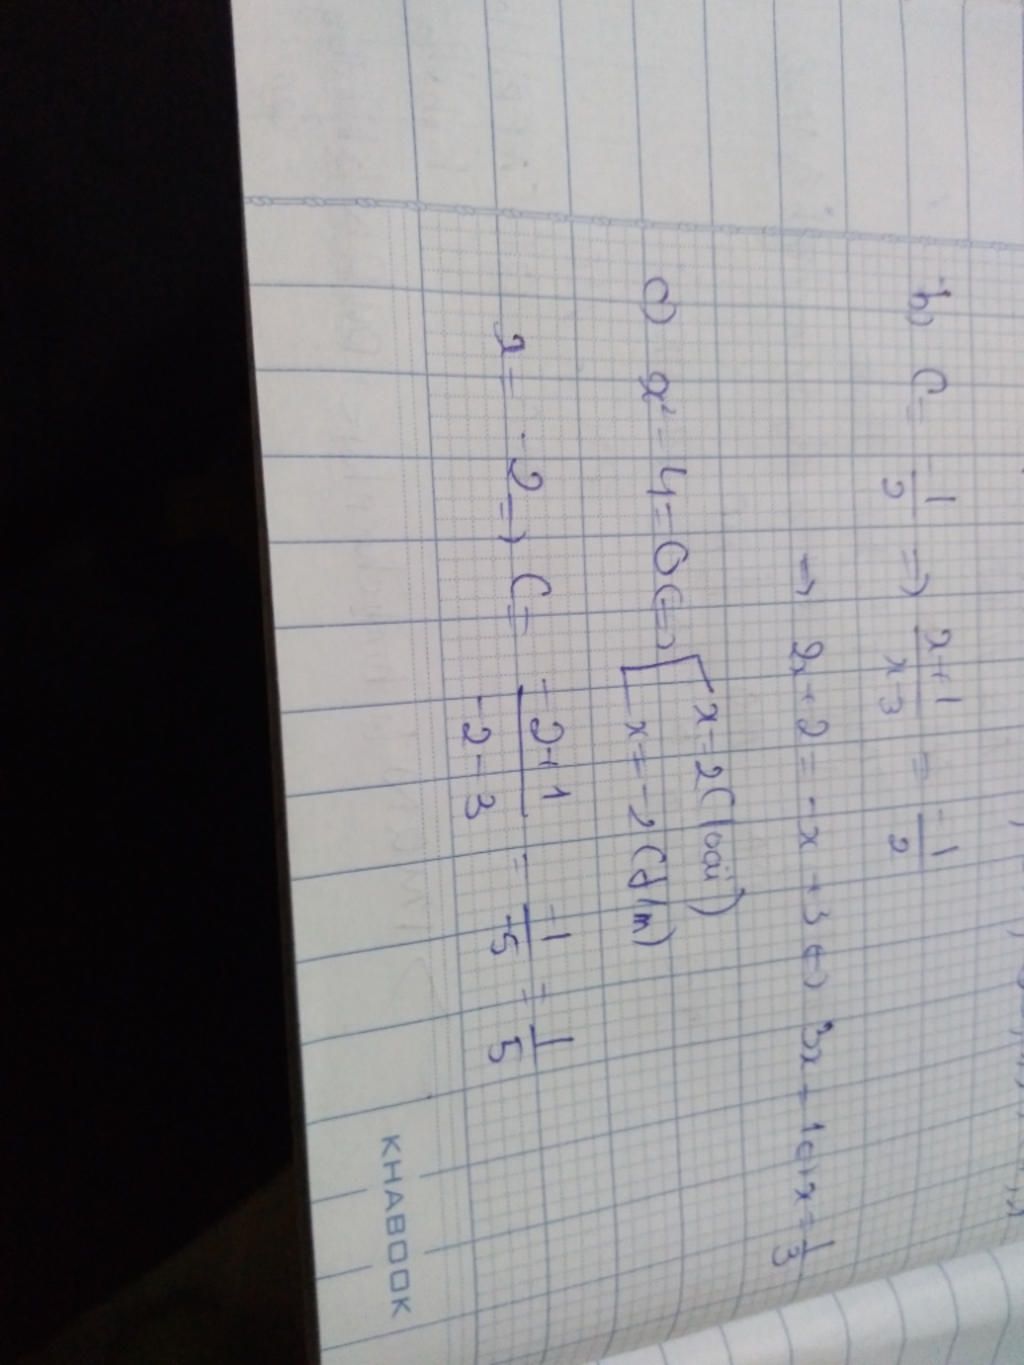 b) C = -1/2 => x+1/x-3 = -1/2
=> 2x + 2 = -x + 3 <=> 3x = 1 <=> x = 1/3
c) x² - 4 = 0 <=> [ x = 2 (loại)
x = -2 (t/m)
x = -2 => C = -2+1/-2-3 = -1/-5 = 1/5
KHABOOK